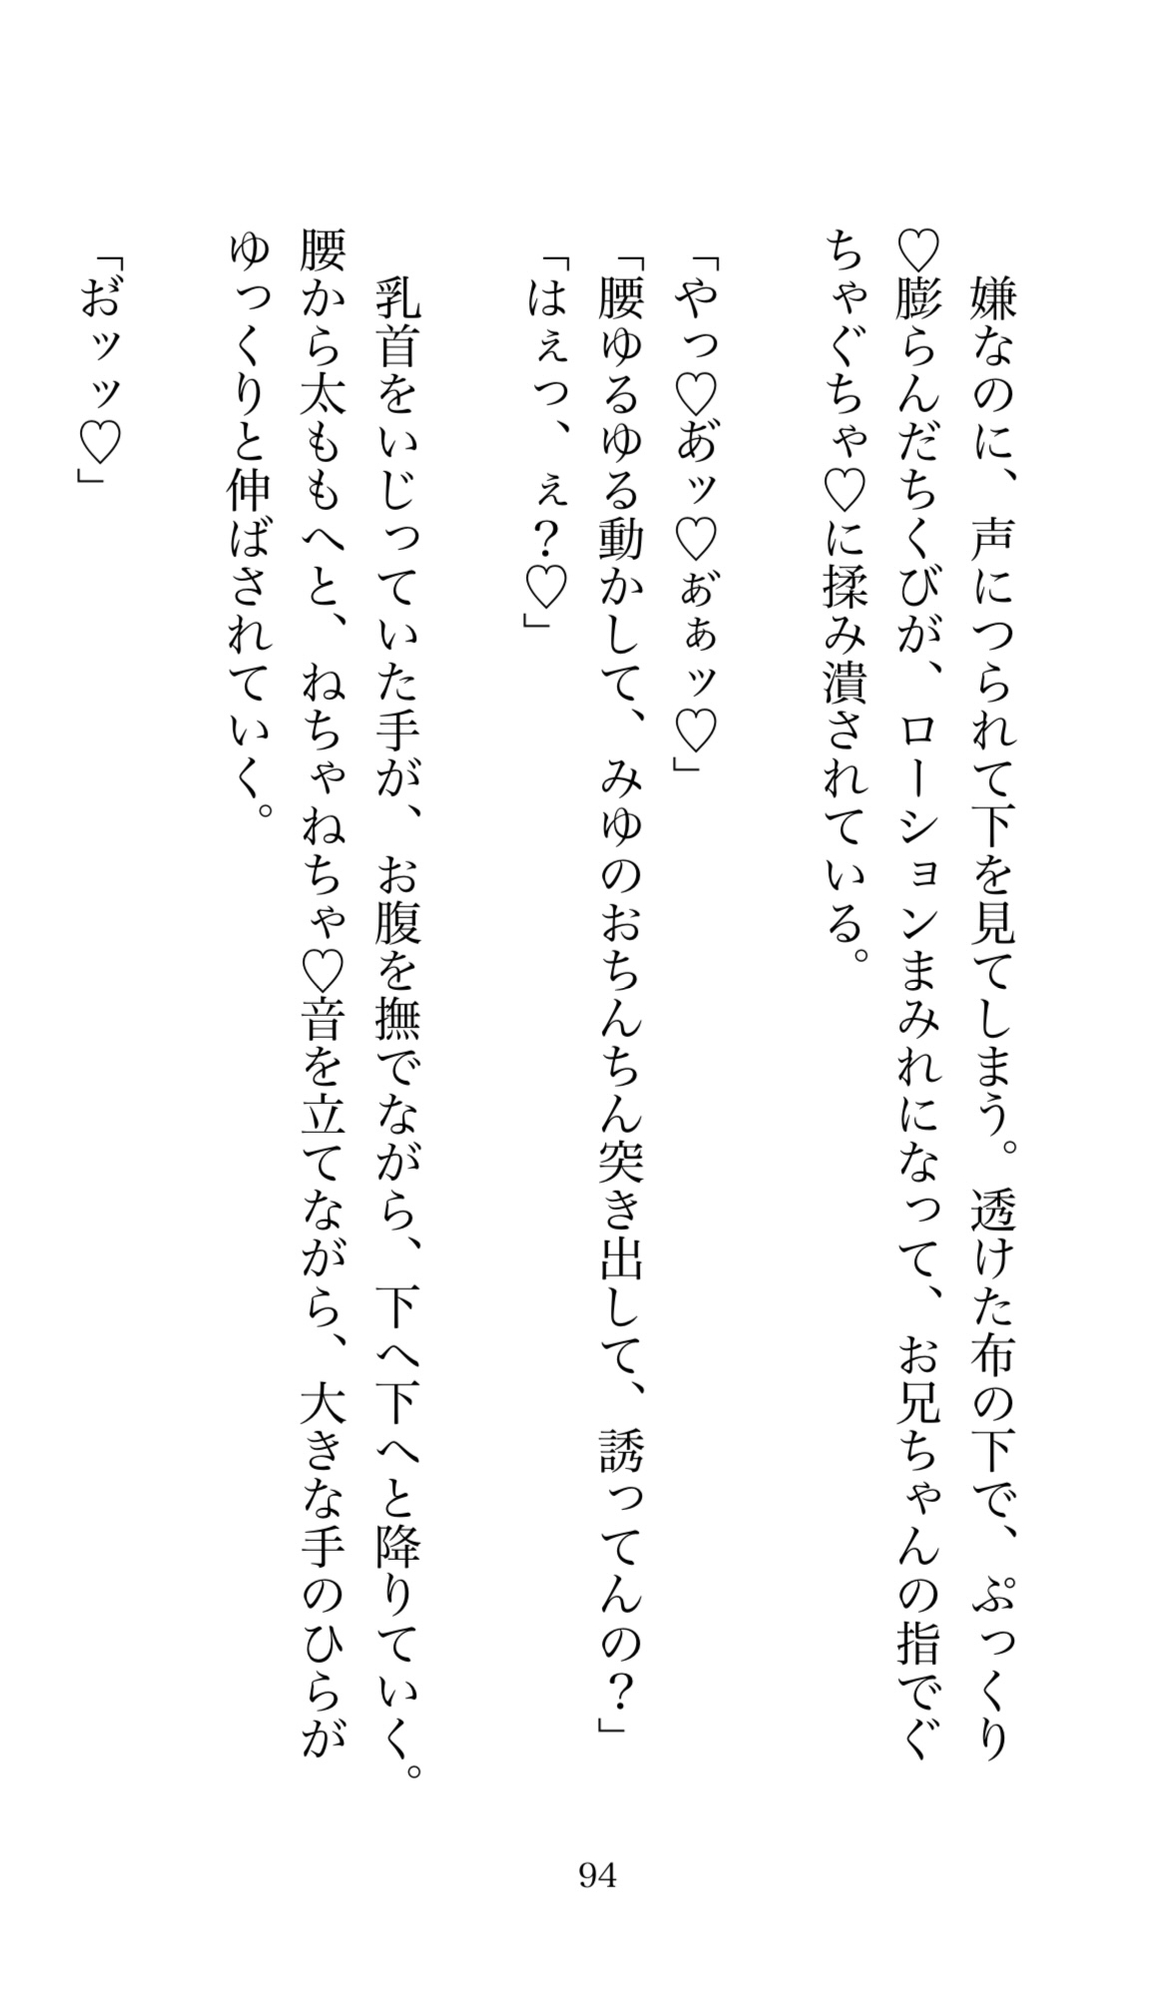 嫌なのに、声につられて下を見てしまう。透けた布の下で、ぷっくり
♡膨らんだちくびが、ローションまみれになって、お兄ちゃんの指でぐ
ちゃぐちゃ♡に揉み潰されている。
「やっ♡あ゙ッ♡ぁ゙ぁッ♡」
「腰ゆるゆる動かして、みゆのおちんちん突き出して、誘ってんの？」
「はぇっ、ぇ？♡」
乳首をいじっていた手が、お腹を撫でながら、下へ下へと降りていく。
腰から太ももへと、ねちゃねちゃ♡音を立てながら、大きな手のひらが
ゆっくりと伸ばされていく。
「お゙ッッ♡」
94